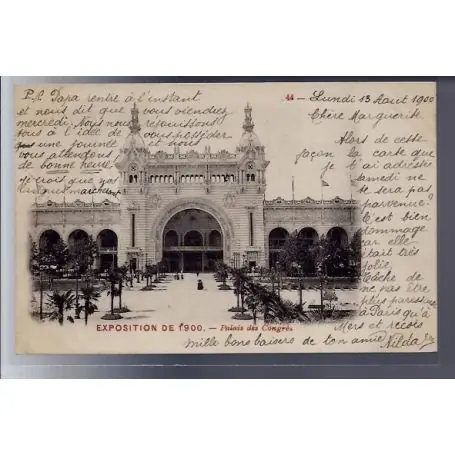 P.S. Papa rentre à l'instant
et nous dit que vous viendrez
mercredi. Nous nous réjouissons
tous à l'idée de vous posséder
une journée et nous
vous attendons
de bonne heure.
Je crois que ça
44 — Lundi 13 Août 1900
Chère Marguerite
Alors de cette
façon la carte que
je t'ai adressée
samedi ne
te sera pas
parvenue?
C'est bien
dommage
car elle
était très
jolie.
Tâche de
ne pas être
plus
à Paris qu'à
Mers et reçois
EXPOSITION DE 1900. — Palais des Congrès.
Mille bons baisers de ton amie Nilda